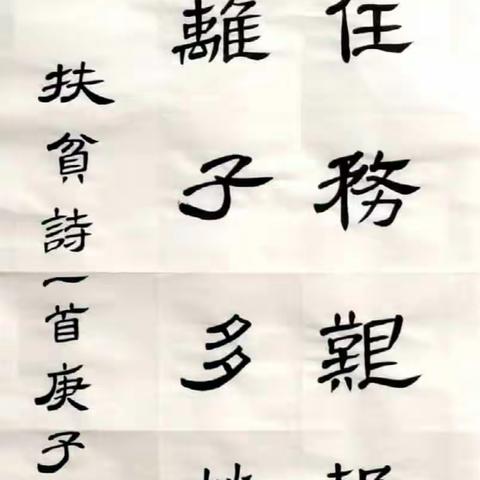 任務艱
離子多
扶貧詩一首庚子